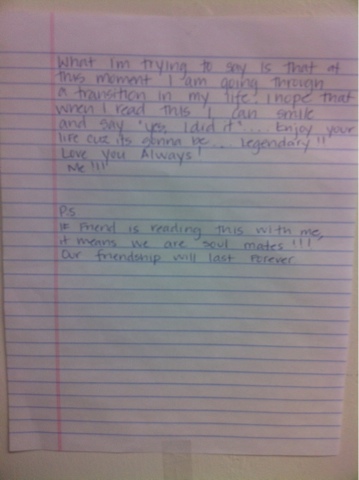 What I'm trying to say is that at
this moment I am going through
a transition in my life. I hope that
when I read this I can smile
and say "yes, I did it".... Enjoy your
life cuz its gonna be... legendary!!
Love you Always!
Me!!!
P.S
IF Friend is reading this with me,
it means we are soul mates!!!
Our friendship will last Forever.